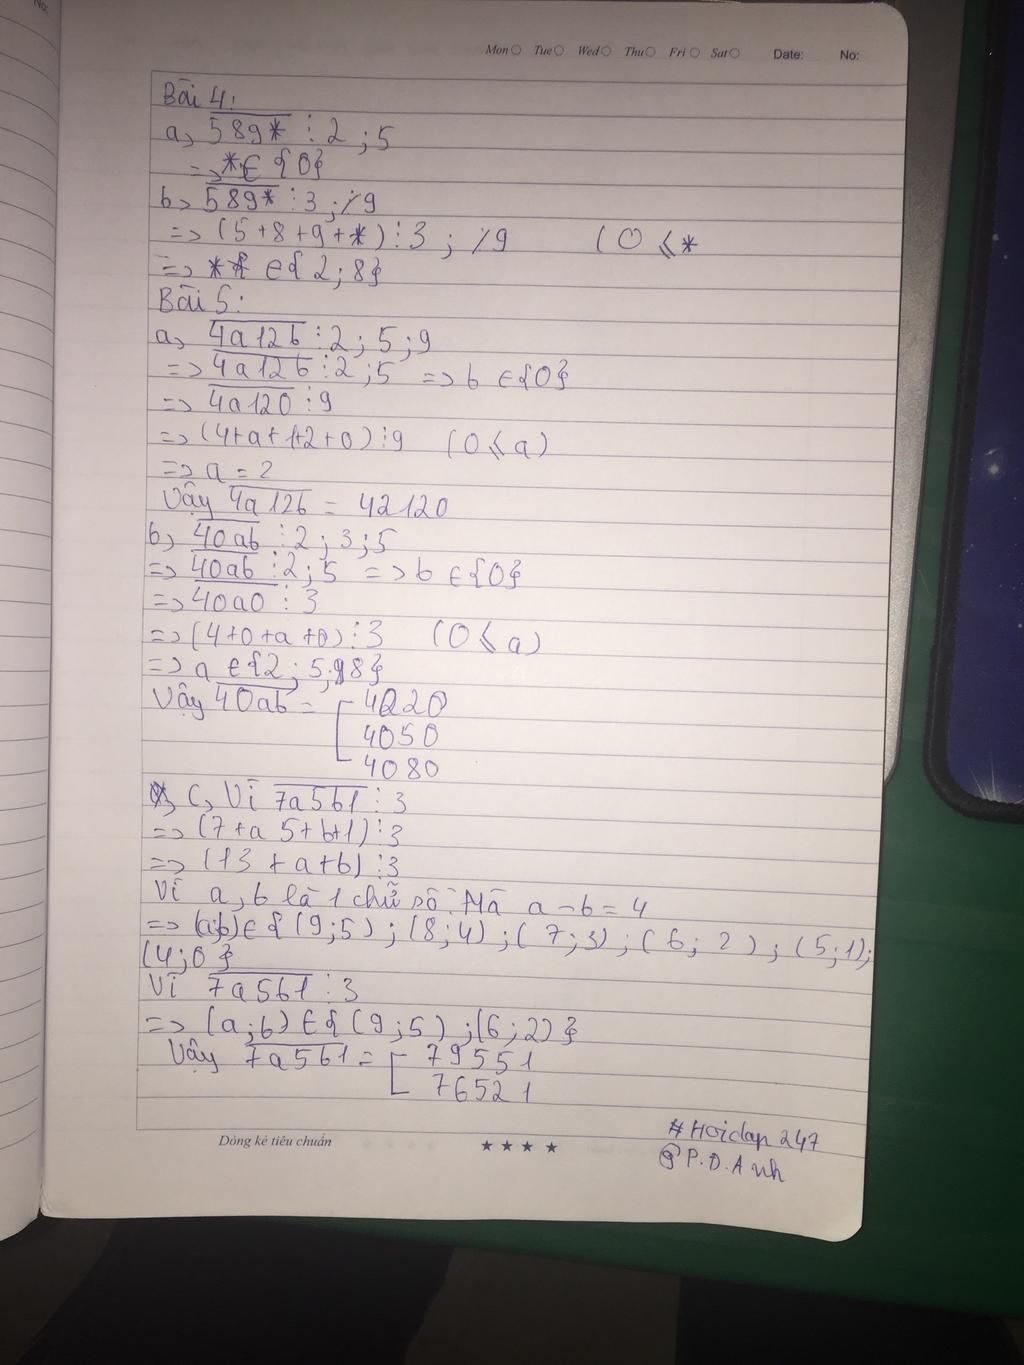 Mon Tue Wed Thu Fri Sat Date: No:
Bài 4:
a, 589* ⋮ 2 ; 5
=> * ∈ {0}
b, 589* ⋮ 3 ; ⋮̸ 9
=> (5+8+9+*) ⋮ 3 ; ⋮̸ 9 (0 ⩽ *
=> * ∈ { 2 ; 8}
Bài 5:
a, 4a12b ⋮ 2 ; 5 ; 9
=> 4a12b ⋮ 2 ; 5 => b ∈ {0}
=> 4a120 ⋮ 9
=> (4+a+1+2+0) ⋮ 9 (0 ⩽ a)
=> a = 2
Vậy 4a12b = 42120
b, 40ab ⋮ 2 ; 3 ; 5
=> 40ab ⋮ 2 ; 5 => b ∈ {0}
=> 40a0 ⋮ 3
=> (4+0+a+0) ⋮ 3 (0 ⩽ a)
=> a ∈ {2 ; 5 ; 8}
Vậy 40ab = [ 4020
4050
4080
C, Vì 7a5b1 ⋮ 3
=> (7+a 5+b+1) ⋮ 3
=> (13 + a+b) ⋮ 3
Vì a, b là 1 chữ số. Mà a - b = 4
=> (a;b) ∈ { (9;5) ; (8;4) ; (7;3) ; (6; 2) ; (5;1);
(4;0 }
Vì 7a5b1 ⋮ 3
=> (a;b) ∈ { (9;5) ; (6;2) }
Vậy 7a5b1 = [ 79551
76521
Dòng kẻ tiêu chuẩn
#Hoidap 247
@P.D.Anh